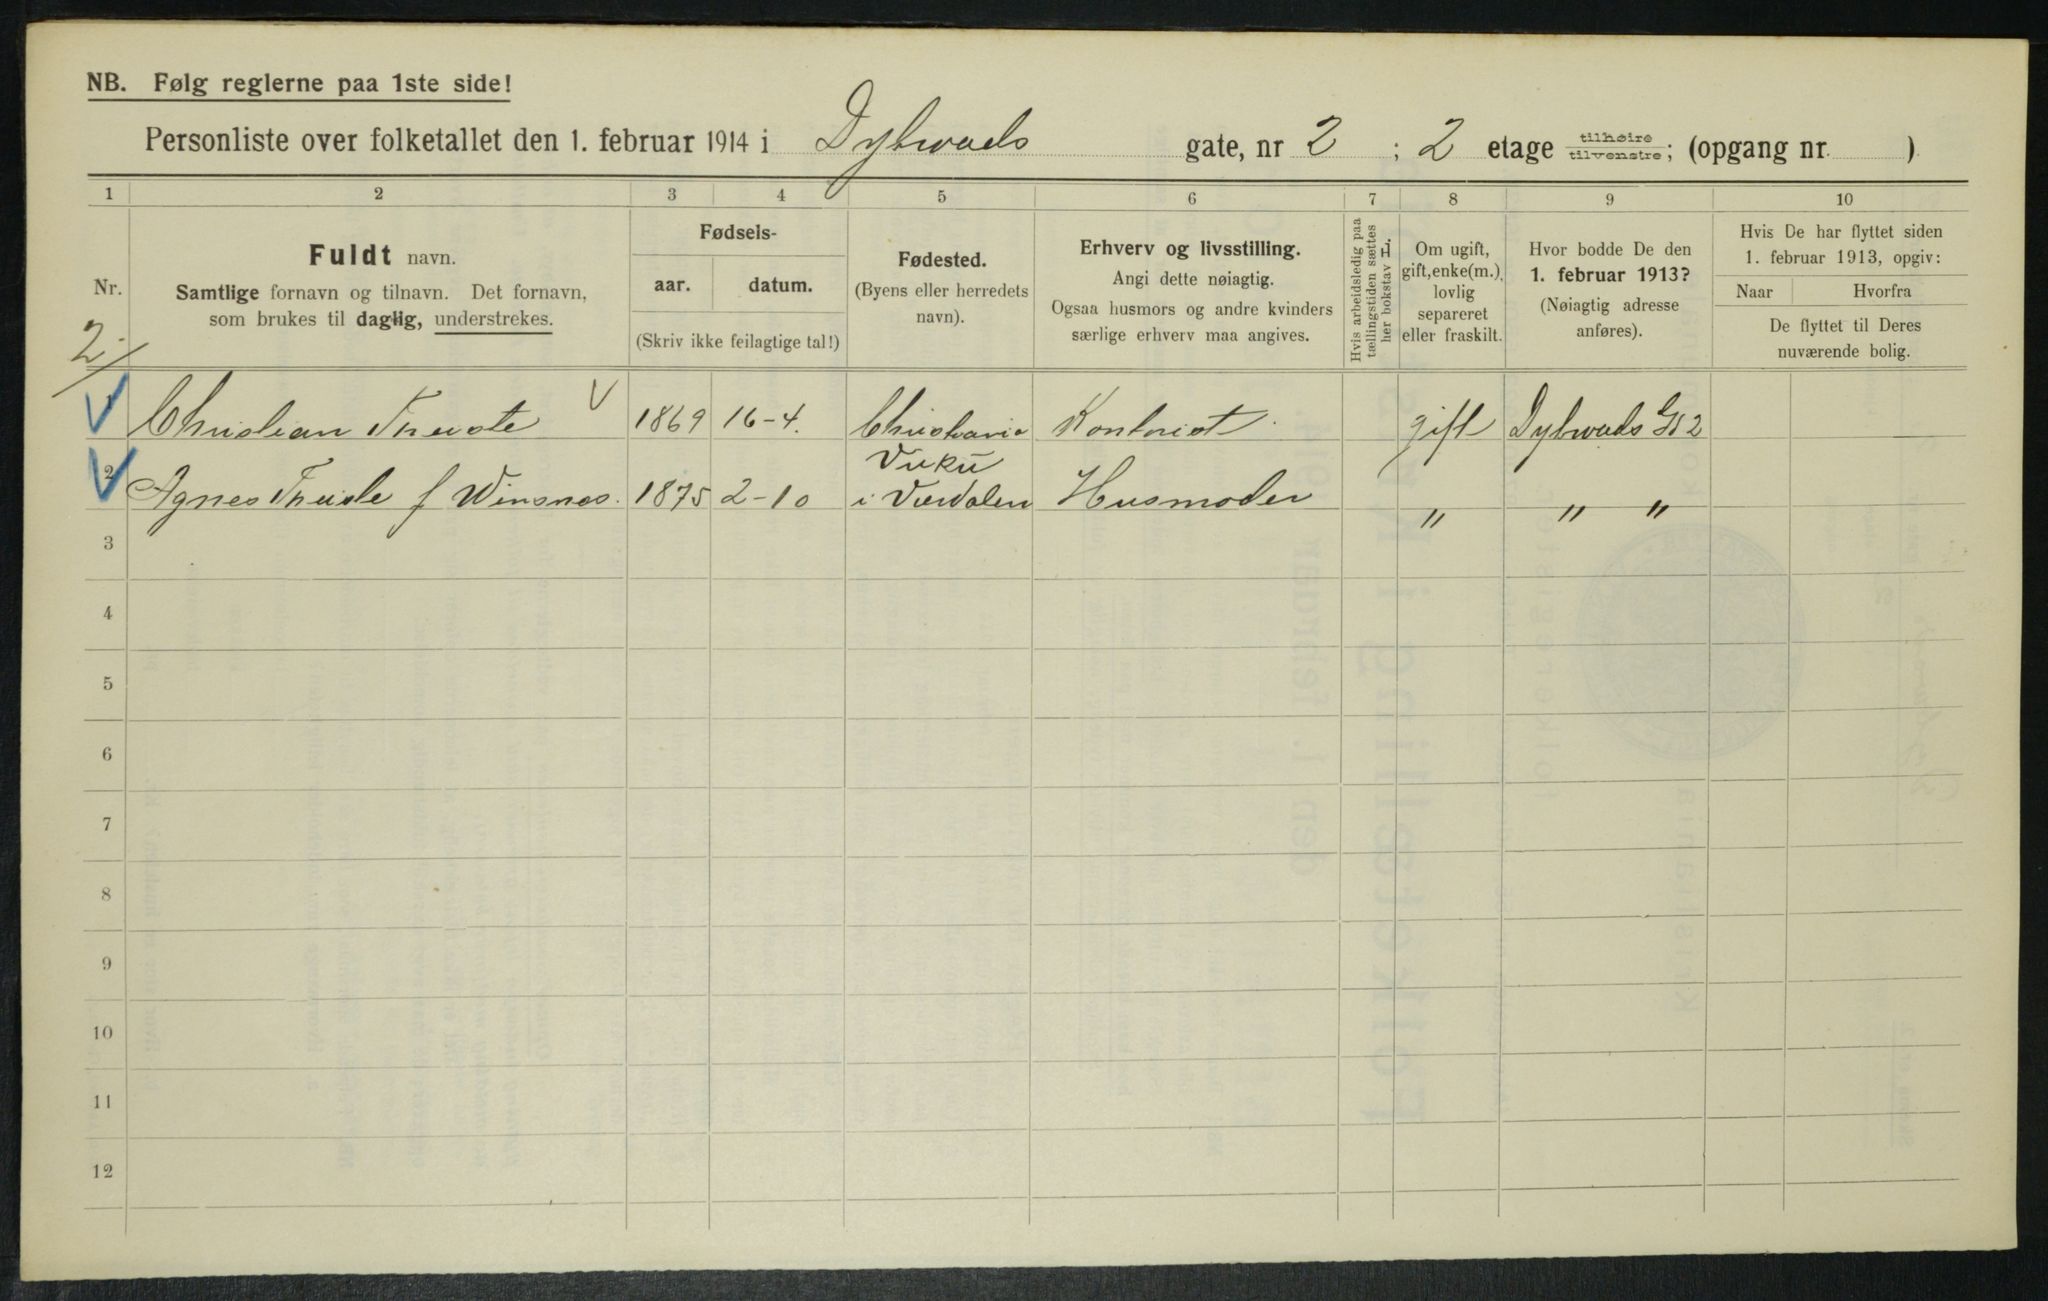 NB. Følg reglerne paa 1ste side!
Personliste over folketallet den 1. februar 1914 i Dybwads gate, nr 2 ; 2 etage tilhøire tilvenstre; (opgang nr. )
1 2 3 4 5 6 7 8 9 10
Nr.
Fuldt navn.
Samtlige fornavn og tilnavn. Det fornavn,
som brukes til daglig, understrekes.
Fødsels-
aar. datum.
(Skriv ikke feilagtige tal!)
Fødested.
(Byens eller herredets
navn).
Erhverv og livsstilling.
Angi dette nøiagtig.
Ogsaa husmors og andre kvinders
særlige erhverv maa angives.
Hvis arbeidsledig paa
tællingstiden sættes
her bokstav L.
Om ugift,
gift, enke(m.),
lovlig
separeret
eller fraskilt.
Hvor bodde De den
1. februar 1913?
(Nøiagtig adresse
anføres).
Hvis De har flyttet siden
1. februar 1913, opgiv:
Naar Hvorfra
De flyttet til Deres
nuværende bolig.
2/
1 Christian Theiste 1869 16-4. Christiania Kontorist gift Dybwads Gt 2
Vuku
2 Agnes Theiste f Winsnes. 1875 2-10 i Værdalen Husmoder " " "
3
4
5
6
7
8
9
10
11
12